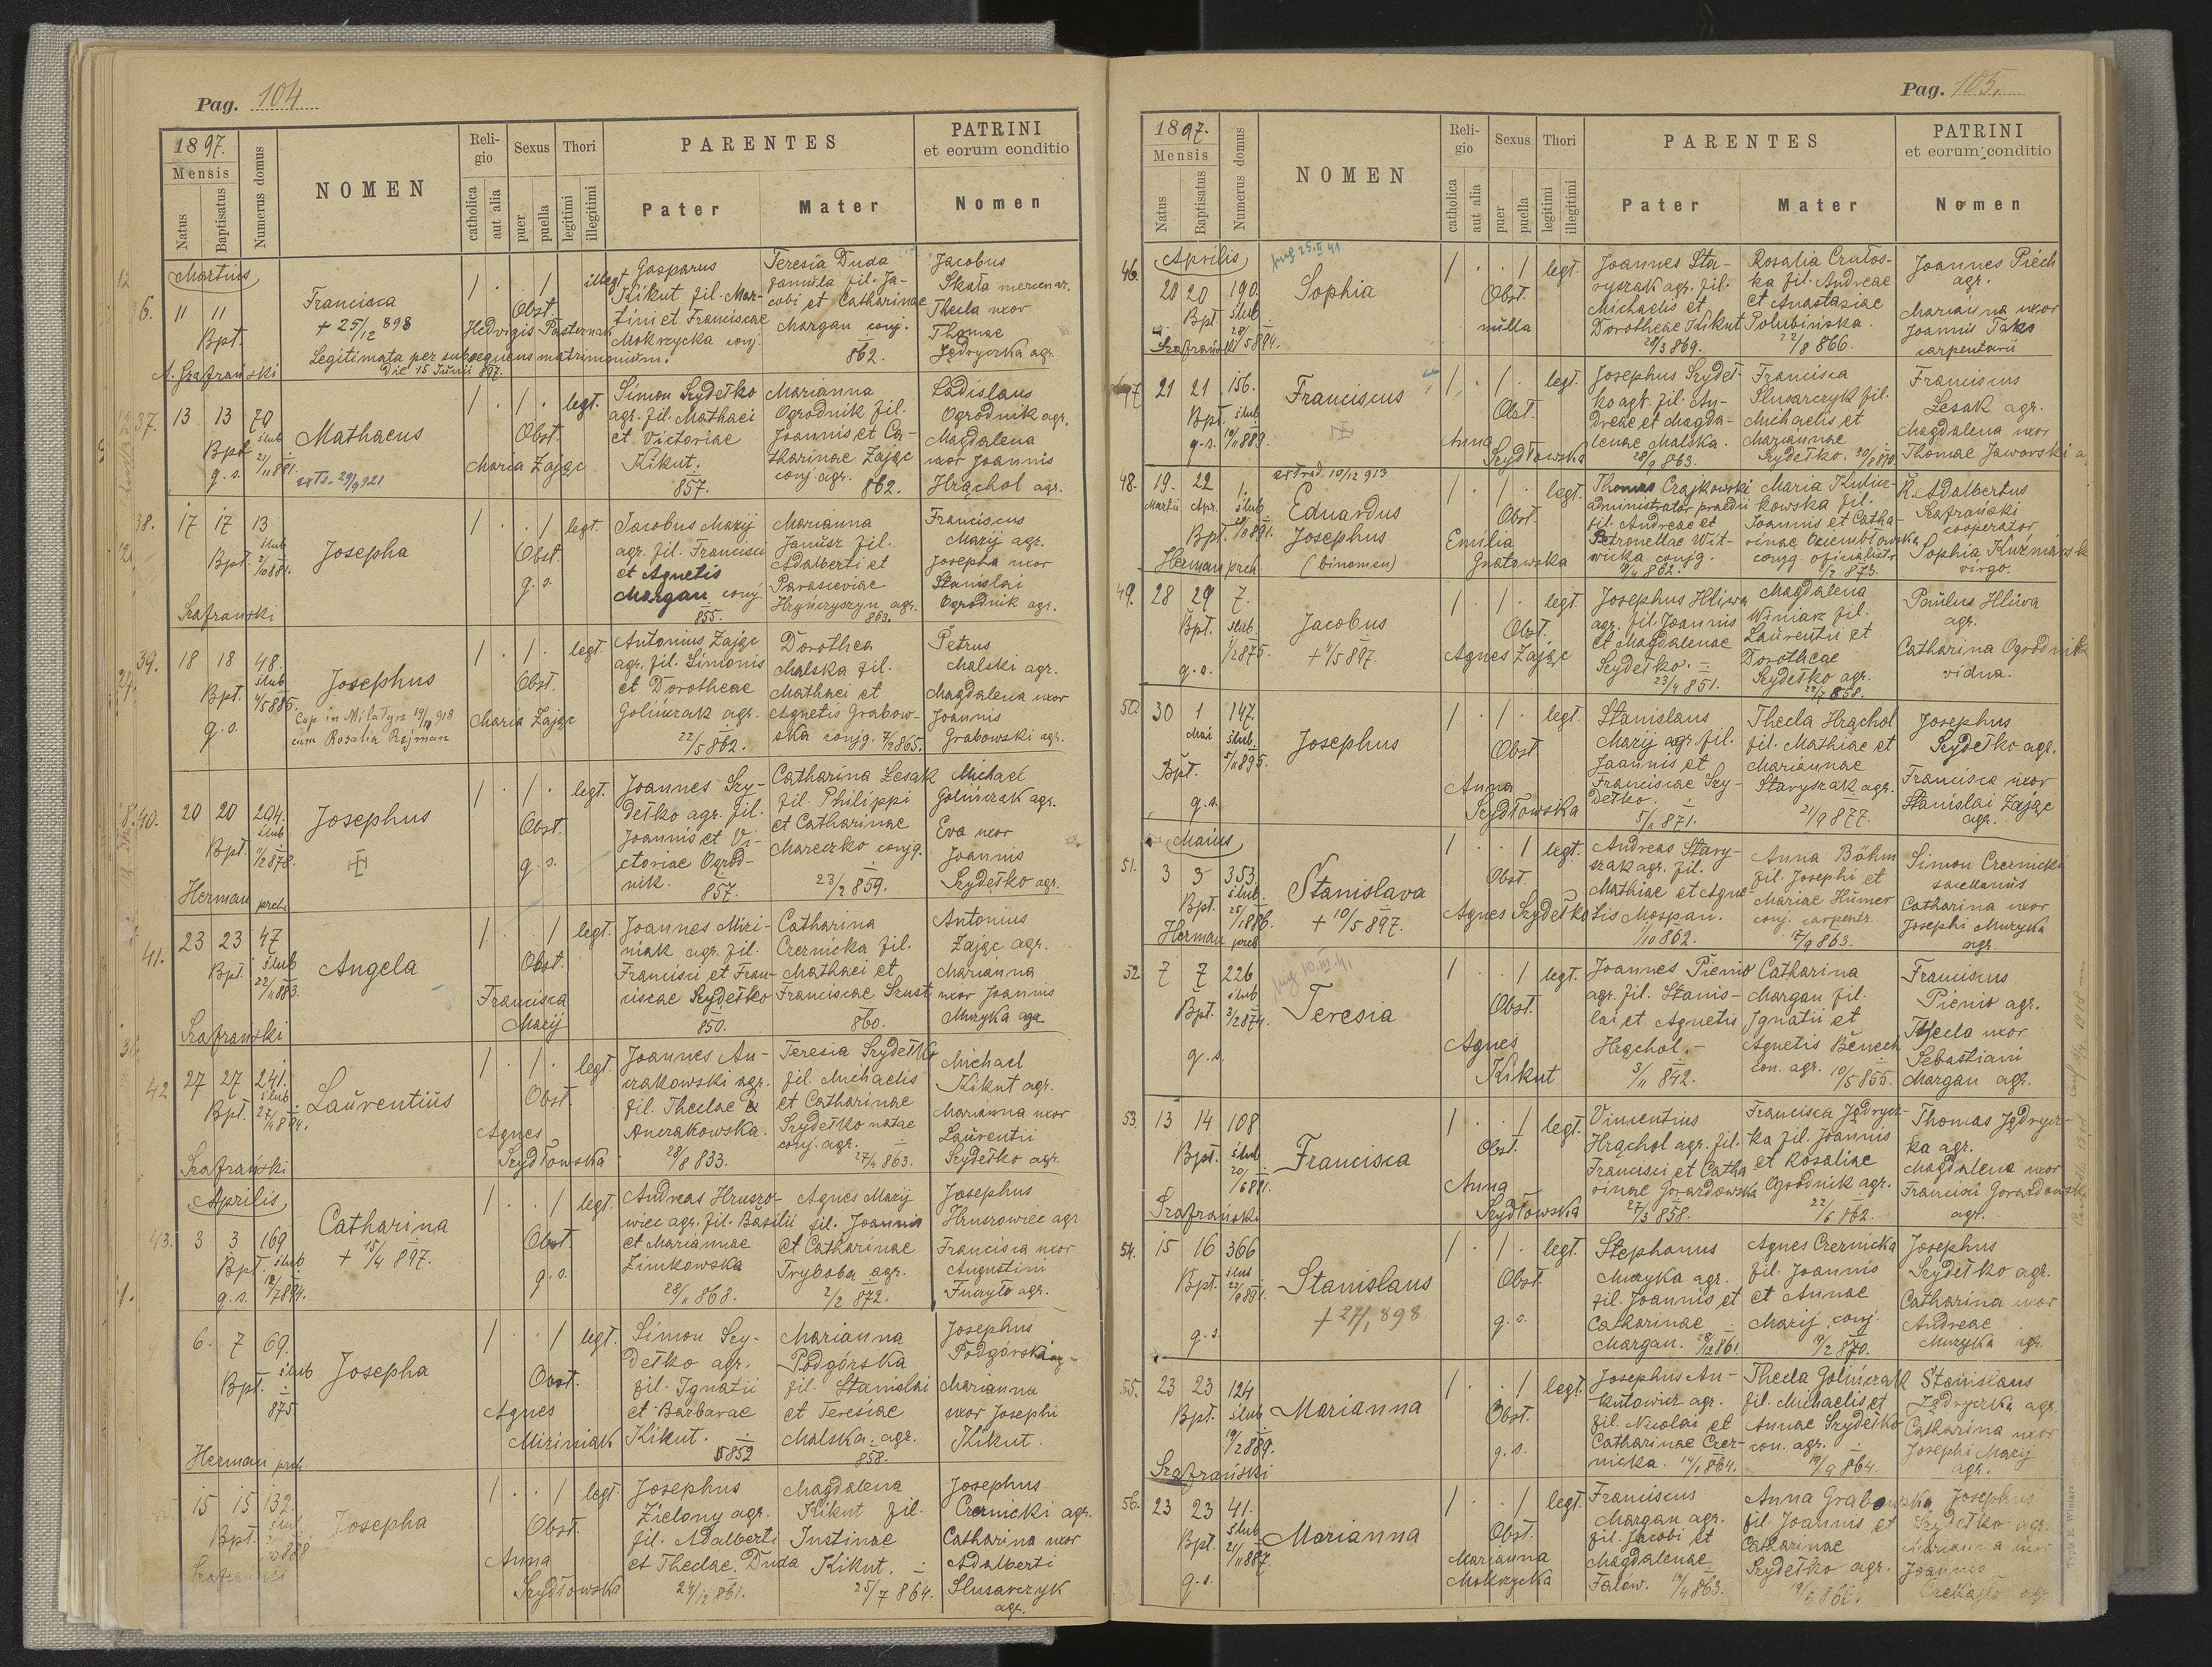 Pag. 104
1897.
Mensis
Natus
Baptisatus
Numerus domus
NOMEN
Religio
catholica
aut alia
Sexus
puer
puella
Thori
legitimi
illegitimi
PARENTES
Pater
Mater
PATRINI
et eorum conditio
Nomen
Martius
6. 11 11
Bpt.
A. Szafrański
Francisca
+ 25/12 898
Legitimata per subsequens matrimonium.
Die 15 Junii 897.
1 . . 1 illegt
Obst.
Hedvigis Pasternak
Gasparus
Kikut fil. Mar-
tini et Franciscae
Mokrzycka conj.
Teresia Duda
famula fil. Ja-
cobi et Catharinae
Margan conj.
862.
Jacobus
Skała mercenar.
Thecla uxor
Thomae
Jędryczka agr.
37. 13 13 79
Bpt. ślub
g. s. 21/11 881.
Mathaeus
extr. 29/9 921
1 . 1 . legt.
Obst.
Maria Zając
Simon Szydełko
agr. fil. Mathaei
et Victoriae
Kikut.
857.
Marianna
Ogrodnik fil.
Joannis et Ca-
tharinae Zając
conj. agr. 862.
Ladislaus
Ogrodnik agr.
Magdalena
uxor Joannis
Hrąchol agr.
38. 17 17 13
Bpt. ślub
Szafrański
Josepha
1 . . 1 legt.
Obst.
g. s.
Jacobus Mazij
agr. fil. Francisci
et Agnetis
Margan conj.
855.
Marianna
Janusz fil.
Adalberti et
Parasceviae
Hryńczyszyn agr.
863.
Franciscus
Mazij agr.
Josepha uxor
Stanislai
Ogrodnik agr.
39. 18 18 48.
Bpt. ślub
g. s.
Josephus
Cop. in Milatyn 19/10 918
cum Rosalia Rejman
1 . 1 . legt.
Obst.
Maria Zając
Antonius Zając
agr. fil. Simonis
et Dorotheae
Golińczak agr.
22/5 862.
Dorothea
Malska fil.
Mathaei et
Agnetis Grabow-
ska conjg. 7/2 865.
Petrus
Malski agr.
Magdalena uxor
Joannis
Grabowski agr.
40. 20 20 294.
Bpt. ślub
11/2 878.
Herman prch.
Josephus
1 . 1 . legt.
Obst.
g. s.
Joannes Szy-
dełko agr. fil.
Joannis et Vi-
ctoriae Ogrod-
nik. 857.
Catharina Lesak
fil. Philippi
et Catharinae
Mareczko conjg.
23/2 859.
Michael
Golińczak agr.
Eva uxor
Joannis
Szydełko agr.
41. 23 23 47
Bpt. ślub
22/11 883.
Szafrański
Angela
1 . . 1 legt.
Obst.
Francisca
Mazij
Joannes Miri-
niak agr. fil.
Francisci et Fran-
ciscae Szydełko
850.
Catharina
Czernicka fil.
Mathaei et
Franciscae Szust
860.
Antonius
Zając agr.
Marianna
uxor Joannis
Muzyka agr.
42 27 27 241.
Bpt. ślub
27/4 894.
Szafrański
Laurentius
1 . 1 . legt.
Obst.
Agnes
Szydłowska
Joannes An-
czakowski agr.
fil. Theclae
Anczakowska.
28/8 833.
Teresia Szydełko
fil. Michaelis
et Catharinae
Szydełko natae
conj. agr.
27/4 863.
Michael
Kikut agr.
Marianna uxor
Laurentii
Szydełko agr.
Aprilis
43. 3 3 169
Bpt. ślub
g. s. 12/7 894.
Catharina
+ 15/4 897.
1 . . 1 legt.
Obst.
g. s.
Andreas Hruszo-
wiec agr. fil. Basilii
et Mariannae
Zimkowska
28/11 868.
Agnes Mazij
fil. Joannis
et Catharinae
Tryboba agr.
2/2 872.
Josephus
Hruszowiec agr
Francisca uxor
Augustini
Furyto agr.
6. 7 69.
Bpt. ślub
875
Herman prch.
Josepha
1 . . 1 legt.
Obst.
Agnes
Miriniak
Simon Szy-
dełko agr.
fil. Ignatii
et Barbarae
Kikut.
852
Marianna
Podgórska
fil. Stanislai
et Teresiae
Malska. agr.
858.
Josephus
Podgórski
Marianna
uxor Josephi
Kikut.
15 15 132.
Bpt. ślub
Szafrański
Josepha
1 . . 1 legt
Obst.
Anna
Szydłowska
Josephus
Zielony agr.
fil. Adalberti
et Theclae Duda
24/12 861.
Magdalena
Kikut fil.
Justinae
Kikut.
25/7 864.
Josephus
Czernicki agr.
Catharina uxor
Adalberti
Slusarczyk
agr.
Pag. 105.
1897.
Mensis
Natus
Baptisatus
Numerus domus
NOMEN
Religio
catholica
aut alia
Sexus
puer
puella
Thori
legitimi
illegitimi
PARENTES
Pater
Mater
PATRINI
et eorum conditio
Nomen
Aprilis
46. 20 20 190.
Bpt ślub
Szafrański
Sophia
1 . . 1 legt.
Obst.
nulla
Joannes Sta-
ryszak agr. fil.
Michaelis et
Dorotheae Kikut
28/3 869.
Rosalia Crutos-
ka fil. Andreae
et Anastasiae
Polubińska.
22/8 866.
Joannes Piech
agr.
Marianna uxor
Joannis Tako
carpentarii
47 21 21 156.
Bpt. ślub
g. s. 19/11 889.
Franciscus
1 . 1 . legt.
Obst.
Anna
Szydłowska
Josephus Szydeł-
ko agr. fil. An-
dreae et Magda-
lenae Malska.
28/9 863.
Francisca
Slusarczyk fil.
Michaelis et
Mariannae
Szydełko. 30/8 870.
Franciscus
Lesak agr.
Magdalena uxor
Thomae Jaworski a.
48. 19. 22 1.
Martii Apr. ślub
Bpt.
Herman prch.
extrad. 10/12 913
Eduardus
Josephus
(binomen)
1 . 1 . legt.
Obst.
Emilia
Gnatowska
Thomas Czajkowski
administrator praedii
fil. Andreae et
Petronellae Wit-
wicka conjg.
9/4 862.
Maria
kowska fil.
Joannis et Catha-
rinae
conjg.
1/2 873.
R. Adalbertus
Szafrański
cooperator
Sophia
virgo.
49. 28 29 7.
Bpt. ślub
g. s. 1/2 875.
Jacobus
+ 4/5 897.
1 . 1 . legt.
Obst.
Agnes Zając
Josephus Hliwa
agr. fil. Joannis
et Magdalenae
Szydełko.
23/4 851.
Magdalena
Winiarz fil.
Laurentii et
Dorotheae
Szydełko agr.
22/7 858.
Paulus Hliwa
agr.
Catharina Ogrodnik
vidua.
50. 30 1 147.
Mai ślub
Bpt. 5/11 895.
g. s.
Josephus
1 . 1 . legt.
Obst
Anna
Szydłowska
Stanislaus
Mazij agr. fil.
Joannis et
Franciscae Szy-
dełko.
5/11 871.
Thecla Hrąchol
fil. Mathiae et
Mariannae
Staryszak agr.
21/9 877.
Josephus
Szydełko agr.
Francisca uxor
Stanislai Zając
agr.
Maius
51. 3 5 353
Bpt. ślub
Herman prch
Stanislava
+ 10/5 897.
1 . . 1 legt.
Obst.
Agnes Szydełko
Andreas Stary-
szak agr. fil.
Mathiae et Agne-
tis Mospan.
1/10 862.
Anna Böhm
fil. Josephi et
Mariae Hümer
conj. carpentr.
17/9 863.
Simon Czernicki
sacellanus
Catharina uxor
Josephi Muzyka
agr.
52. 7 7 226
Bpt. ślub
3/2 874.
g. s.
Teresia
1 . . 1 legt.
Obst.
Agnes
Kikut
Joannes Pienio
agr. fil. Stanis-
lai et Agnetis
Hrąchol.
3/11 842.
Catharina
Margan fil.
Ignatii et
Agnetis Benech
con. agr. 10/5 855.
Franciscus
Pienio agr.
Thecla uxor
Sebastiani
Margan agr.
53. 13 14 108
Bpt. ślub
Szafrański
Francisca
1 . . 1 legt.
Obst.
Anna
Szydłowska
Vincentius
Hrąchol agr. fil.
Francisci et Catha
rinae Gorardowska
27/3 858.
Francisca Jędrycz-
ka fil. Joannis
et Rosaliae
Ogrodnik agr.
22/6 862.
Thomas Jędrycz-
ka agr.
Magdalena uxor
Francisci Gorardowski
agr.
54. 15 16 366
Bpt. ślub
g. s.
Stanislaus
+ 27/1 898
1 . 1 . legt.
Obst.
g. s.
Stephanus
Muzyka agr.
fil. Joannis et
Catharinae
Margan. 28/12 861.
Agnes Czernicka
fil. Joannis
et Annae
Mazij. conj.
19/2 870.
Josephus
Szydełko agr.
Catharina uxor
Andreae
Muzyka agr.
55. 23 23 124
Bpt. ślub
19/2 889.
Szafrański
Marianna
1 . . 1 legt.
Obst.
g. s.
Josephus An-
kutowicz agr.
fil. Nicolai et
Catharinae Czer-
nicka. 14/1 864.
Thecla Golińczak
fil. Michaelis et
Annae Szydełko
con. agr.
19/9 864.
Stanislaus
Jędryczka agr.
Catharina uxor
Josephi Mazij
agr.
56. 23 23 41.
Bpt. ślub
21/11 887.
g. s.
Marianna
1 . . 1 legt.
Obst.
Marianna
Mokrzycka
Franciscus
Margan agr.
fil. Jacobi et
Magdalenae
Falów. 14/4 863.
Anna Grabowska
fil. Joannis et
Catharinae
Szydełko agr.
Josephus
Szydełko agr.
Marianna uxor
Joannis
Tryla E. Winiarz